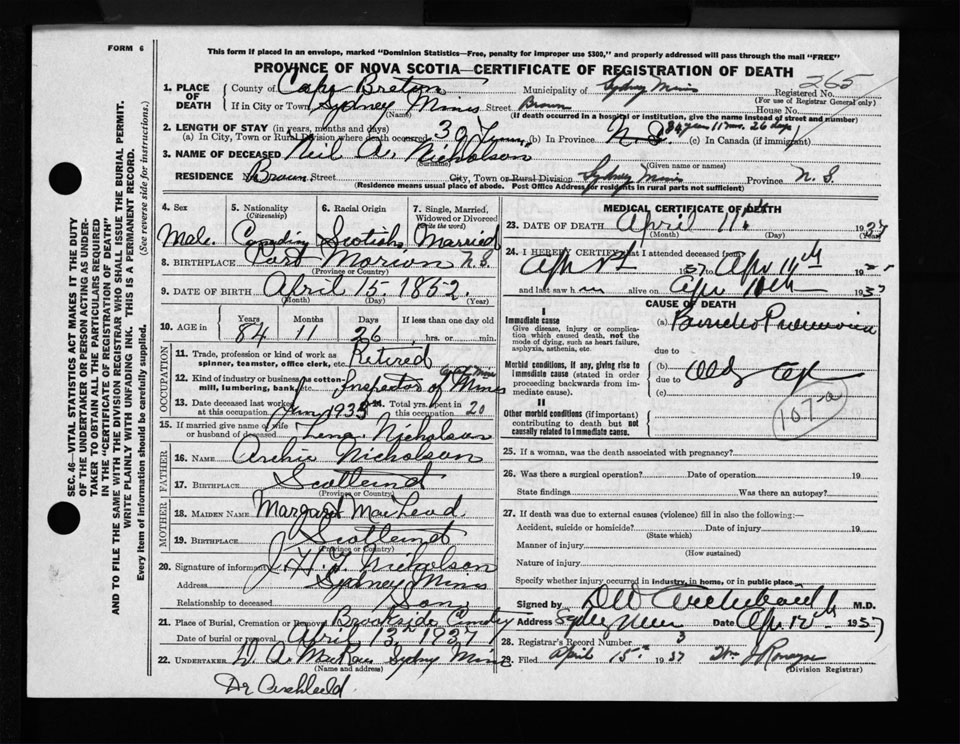 FORM 6
This form if placed in an envelope, marked "Dominion Statistics—Free, penalty for improper use $300," and properly addressed will pass through the mail "FREE"
PROVINCE OF NOVA SCOTIA—CERTIFICATE OF REGISTRATION OF DEATH
265
1. PLACE OF DEATH County of Cape Breton Municipality of Sydney Mines Registered No.
(For use of Registrar General only)
If in City or Town Sydney Mines Street Brown House No.
(Name) (If death occurred in a hospital or institution, give the name instead of street and number)
2. LENGTH OF STAY (in years, months and days) 84 years 11 mos. 26 days
(a) In City, Town or Rural Division where death occurred 30 Years (b) In Province N. S. (c) In Canada (if immigrant)
3. NAME OF DECEASED Neil A. Nicholson
(Surname) (Given name or names)
RESIDENCE Brown Street City, Town or Rural Division Sydney Mines Province N. S.
(Residence means usual place of abode. Post Office Address for residents in rural parts not sufficient)
SEC. 46—VITAL STATISTICS ACT MAKES IT THE DUTY
OF THE UNDERTAKER OR PERSON ACTING AS UNDER-
TAKER TO OBTAIN ALL THE PARTICULARS REQUIRED
IN THE "CERTIFICATE OF REGISTRATION OF DEATH"
AND TO FILE THE SAME WITH THE DIVISION REGISTRAR WHO SHALL ISSUE THE BURIAL PERMIT.
WRITE PLAINLY WITH UNFADING INK. THIS IS A PERMANENT RECORD.
Every item of information should be carefully supplied. (See reverse side for instructions.)
4. Sex 5. Nationality (Citizenship) 6. Racial Origin 7. Single, Married, Widowed or Divorced (Write the word)
Male Scotish Married
8. BIRTHPLACE Port Morien N.S.
(Province or Country)
9. DATE OF BIRTH April 15 1852
(Month) (Day) (Year)
10. AGE in Years Months Days If less than one day old
84 11 26 hrs. or min.
OCCUPATION
11. Trade, profession or kind of work as spinner, teamster, office clerk, etc. Retired
12. Kind of industry or business, as cotton mill, lumbering, bank, etc. Inspector of Mines
13. Date deceased last worked at this occupation 14. Total yrs. spent in this occupation 20
15. If married give name of wife or husband of deceased Lena Nicholson
FATHER
16. NAME Archie Nicholson
17. BIRTHPLACE Scotland
(Province or Country)
MOTHER
18. MAIDEN NAME Margaret MacLeod
19. BIRTHPLACE Scotland
(Province or Country)
20. Signature of informant Nicholson
Address Sydney Mines
Relationship to deceased Son
21. Place of Burial, Cremation or Removal Brookside Cemetery
Date of burial or removal April 13th 1937
22. UNDERTAKER D. A. MacRae Sydney Mines
(Name and address)
Dr Archibald
MEDICAL CERTIFICATE OF DEATH
23. DATE OF DEATH April 11th 1937
(Month) (Day)
24. I HEREBY CERTIFY that I attended deceased from
1937 to Apr 11th 19
and last saw h im alive on Apr 1937
CAUSE OF DEATH
I
Immediate cause
Give disease, injury or complication which caused death, not the mode of dying, such as heart failure, asphyxia, asthenia, etc.
(a) Broncho Pneumonia
due to
Morbid conditions, if any, giving rise to immediate cause (stated in order proceeding backwards from immediate cause).
(b) Old Age
due to
(c)
107-a
II
Other morbid conditions (if important) contributing to death but not causally related to immediate cause.
25. If a woman, was the death associated with pregnancy?
26. Was there a surgical operation? Date of operation 19
State findings Was there an autopsy?
27. If death was due to external causes (violence) fill in also the following:—
Accident, suicide or homicide? Date of injury 19
(State which)
Manner of injury
(How sustained)
Nature of injury
Specify whether injury occurred in industry, in home, or in public place
Signed by Archibald M.D.
Address Sydney Mines Date Apr 12th 1937
28. Registrar's Record Number 3
29. Filed April 15th 1937
(Division Registrar)